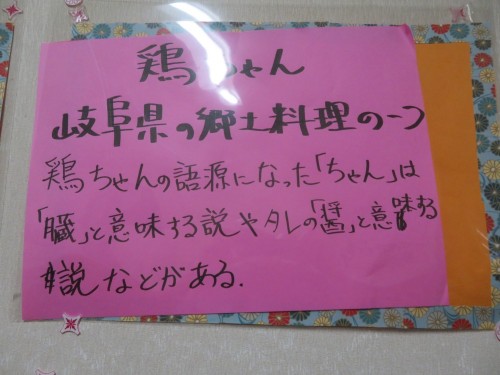 鶏ちゃん
岐阜県の郷土料理の一つ
鶏ちゃんの語源になった「ちゃん」は
「臓」と意味する説やタレの「醤」と意味する
説などがある.